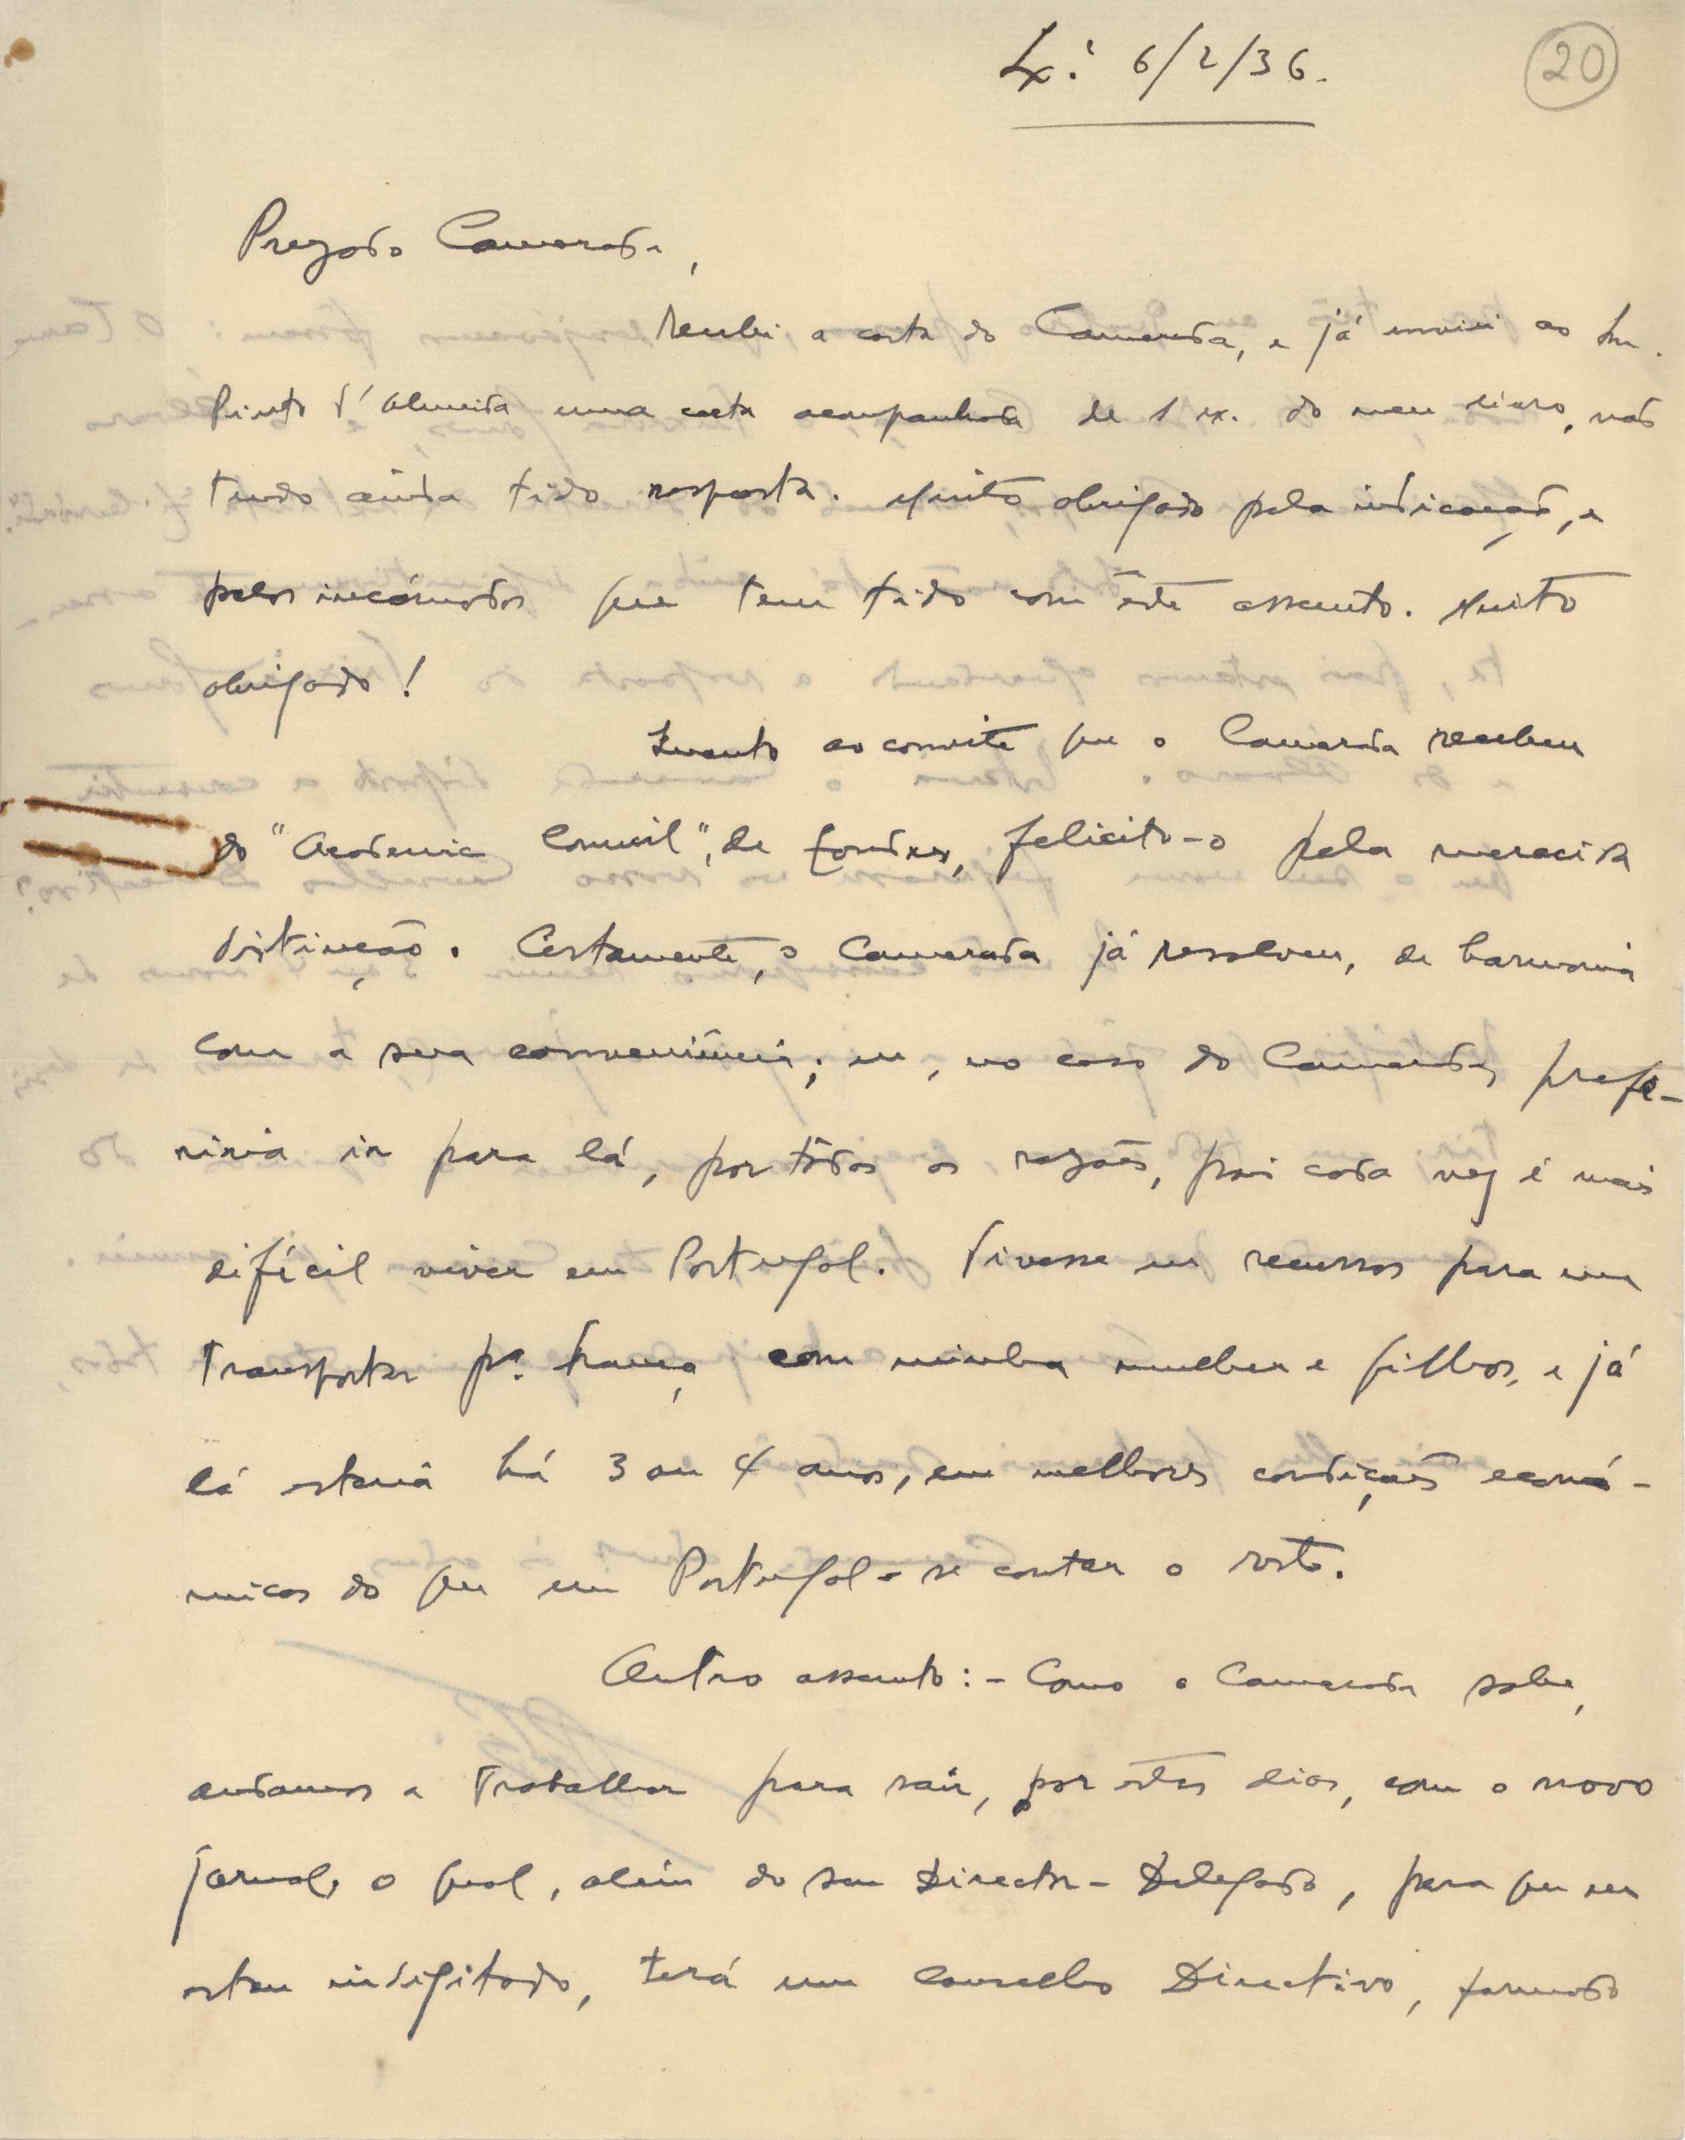 Lx.ª 6/2/36.
20
Prezado Camarada,
Recebi a carta do Camarada, e já enviei ao Snr.
Pinto d'Almeida uma carta acompanhada de 1 ex. do meu livro, não
tendo ainda tido resposta. Muito obrigado pela indicação, e
pelos incómodos que tem tido com êste assunto. Muito
obrigado!
Quanto ao convite que o Camarada recebeu
do "Academic Council", de Londres, felicito-o pela merecida
distinção. Certamente, o Camarada já resolveu, de harmonia
com a sua conveniência; eu, no caso do Camarada, prefe-
riria ir para lá, por tôdas as razões, pois cada vez é mais
difícil viver em Portugal. Tivesse eu recursos para me
transportar pª. França, com minha mulher e filhos, e já
lá estaria há 3 ou 4 anos, em melhores condições econó-
micas do que em Portugal - se contar o resto.
Outro assunto: - Como o Camarada sabe,
andamos a trabalhar para sair, por êstes dias, com o novo
jornal, o qual, além do seu Director-Delegado, para que eu
estou indigitado, terá um Conselho Directivo, formado